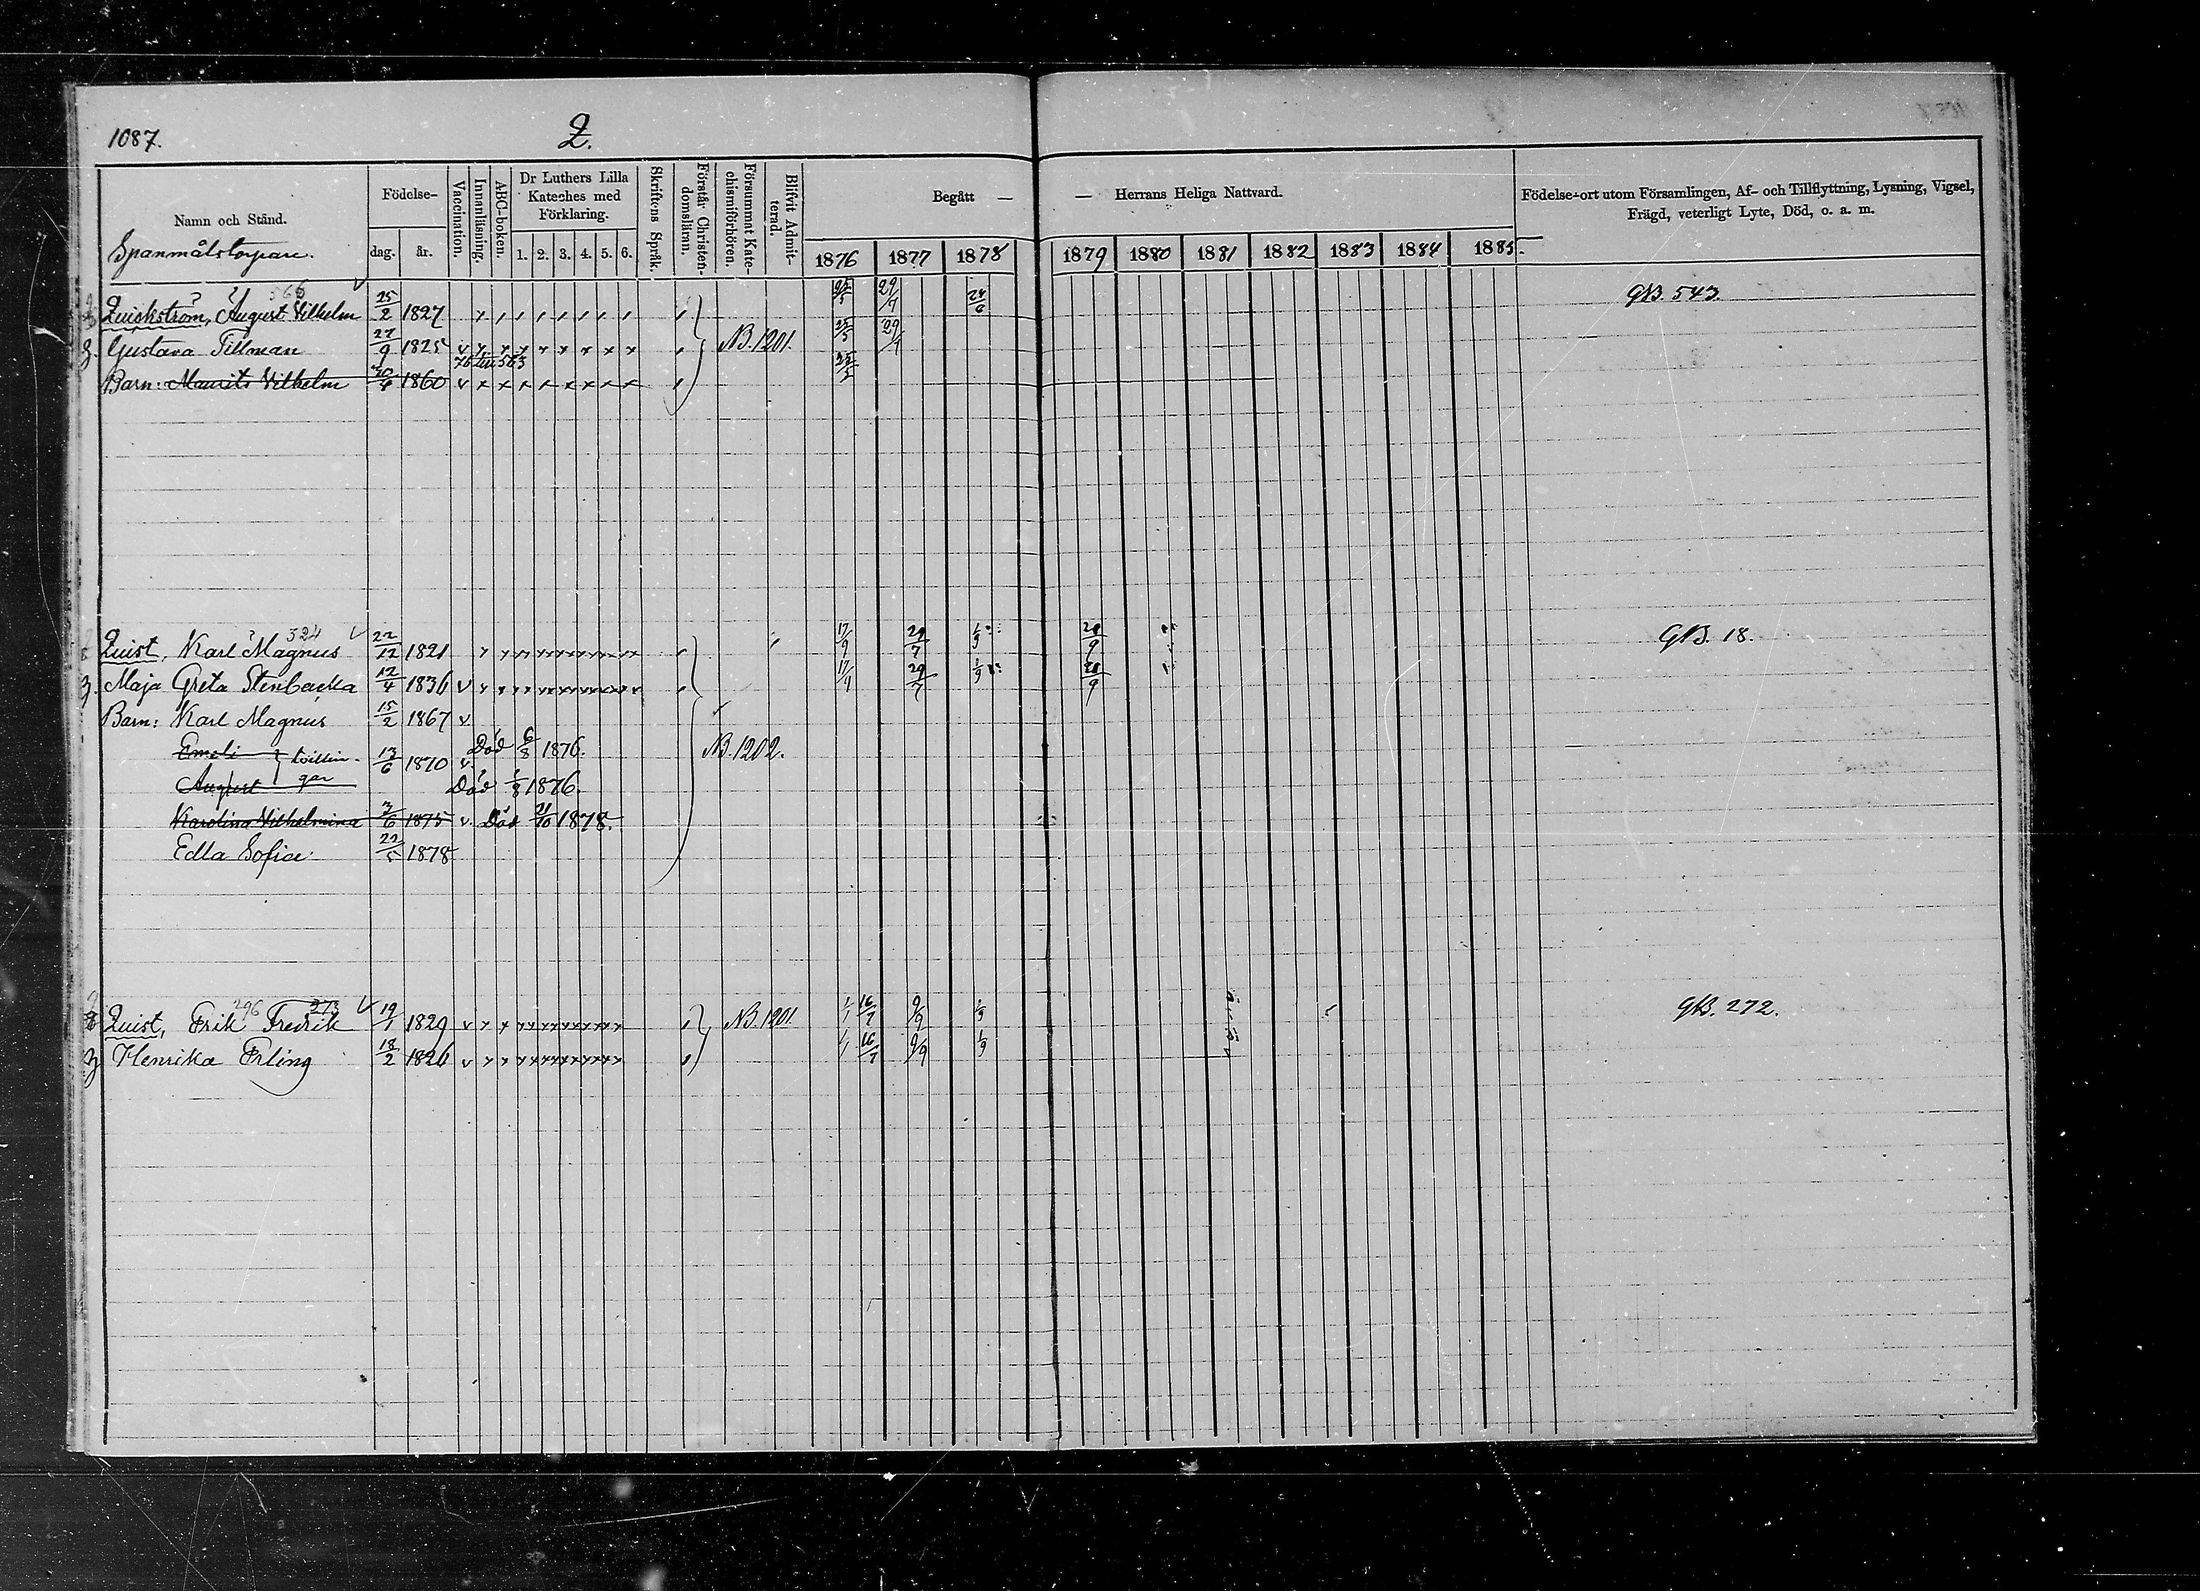 1087.
Q.
Namn och Stånd.
Spanmålstorpare.
Födelse-
dag. år.
Vaccination.
Innanläsning.
ABC-boken.
Dr Luthers Lilla Kateches med Förklaring.
1. 2. 3. 4. 5. 6.
Skriftens Språk.
Förstår Christendomsläran.
Försummat Katechismiförhören.
Blifvit Admitterad.
Begått —
— Herrans Heliga Nattvard.
Födelse-ort utom Församlingen, Af- och Tillflyttning, Lysning, Vigsel,
Frägd, veterligt Lyte, Död, o. a. m.
1876 1877 1878 1879 1880 1881 1882 1883 1884 1885.
566
Quickström, August Vilhelm 25/2 1827 25/5 29/7 24/6 GB. 543.
Gustava Tillman 27/9 1825 NB. 1201. 25/5 29/7
563
Barn: Maurits Vilhelm 30/4 1860 25/5
324
Quist, Karl Magnus 22/12 1821 17/9 29/7 1/9 28/9 GB. 18.
Maja Greta Stenbacka 12/4 1836 29/7 1/9 28/9
Barn: Karl Magnus 15/2 1867 v
Emeli tvillin- 13/6 1870 v Död 6/8 1876. NB. 1202.
August gar Död 1/8 1876.
Karolina Vilhelmina 3/6 1875 v. Död 21/10 1878.
Edla Sofia 1878
296 273
Quist, Erik Fredrik 19/1 1829 NB. 1201. 16/7 9/9 1/9 GB. 272.
Henrika Erling 18/2 1826 16/7 9/9 1/9